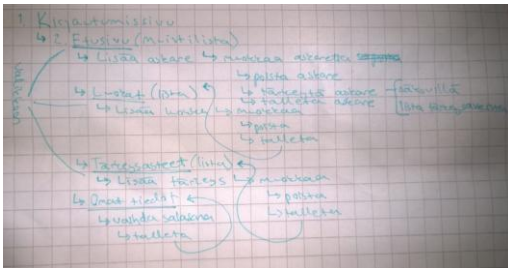 1. Kirjautumissivu
↳ 2. Etusivu (muistilista)
↳ Lisää askare ↳ muokkaa askaretta
↳ poista askare
↳ tärkeystä askare
↳ talleta askare
↳ Luokat (lista)
↳ Lisää luokka ↳ muokkaa
↳ poista
↳ talleta
↳ Tärkeysasteet (lista)
↳ Lisää tärkeys ↳ muokkaa
↳ poista
↳ talleta
↳ Omat tiedot
↳ vaihda salasana
↳ talleta